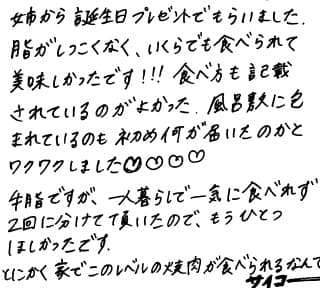 姉から誕生日プレゼントでもらいました.
脂がしつこくなく、いくらでも食べられて
美味しかったです!!! 食べ方も記載
されているのがよかった. 風呂敷に包
まれているのも初め何が届いたのかと
ワクワクしました♡♡♡♡
牛脂ですが、一人暮らしで一気に食べれず
2回に分けて頂いたので、もうひとつ
ほしかったです.
とにかく家でこのレベルの焼肉が食べられるなんて
サイコー